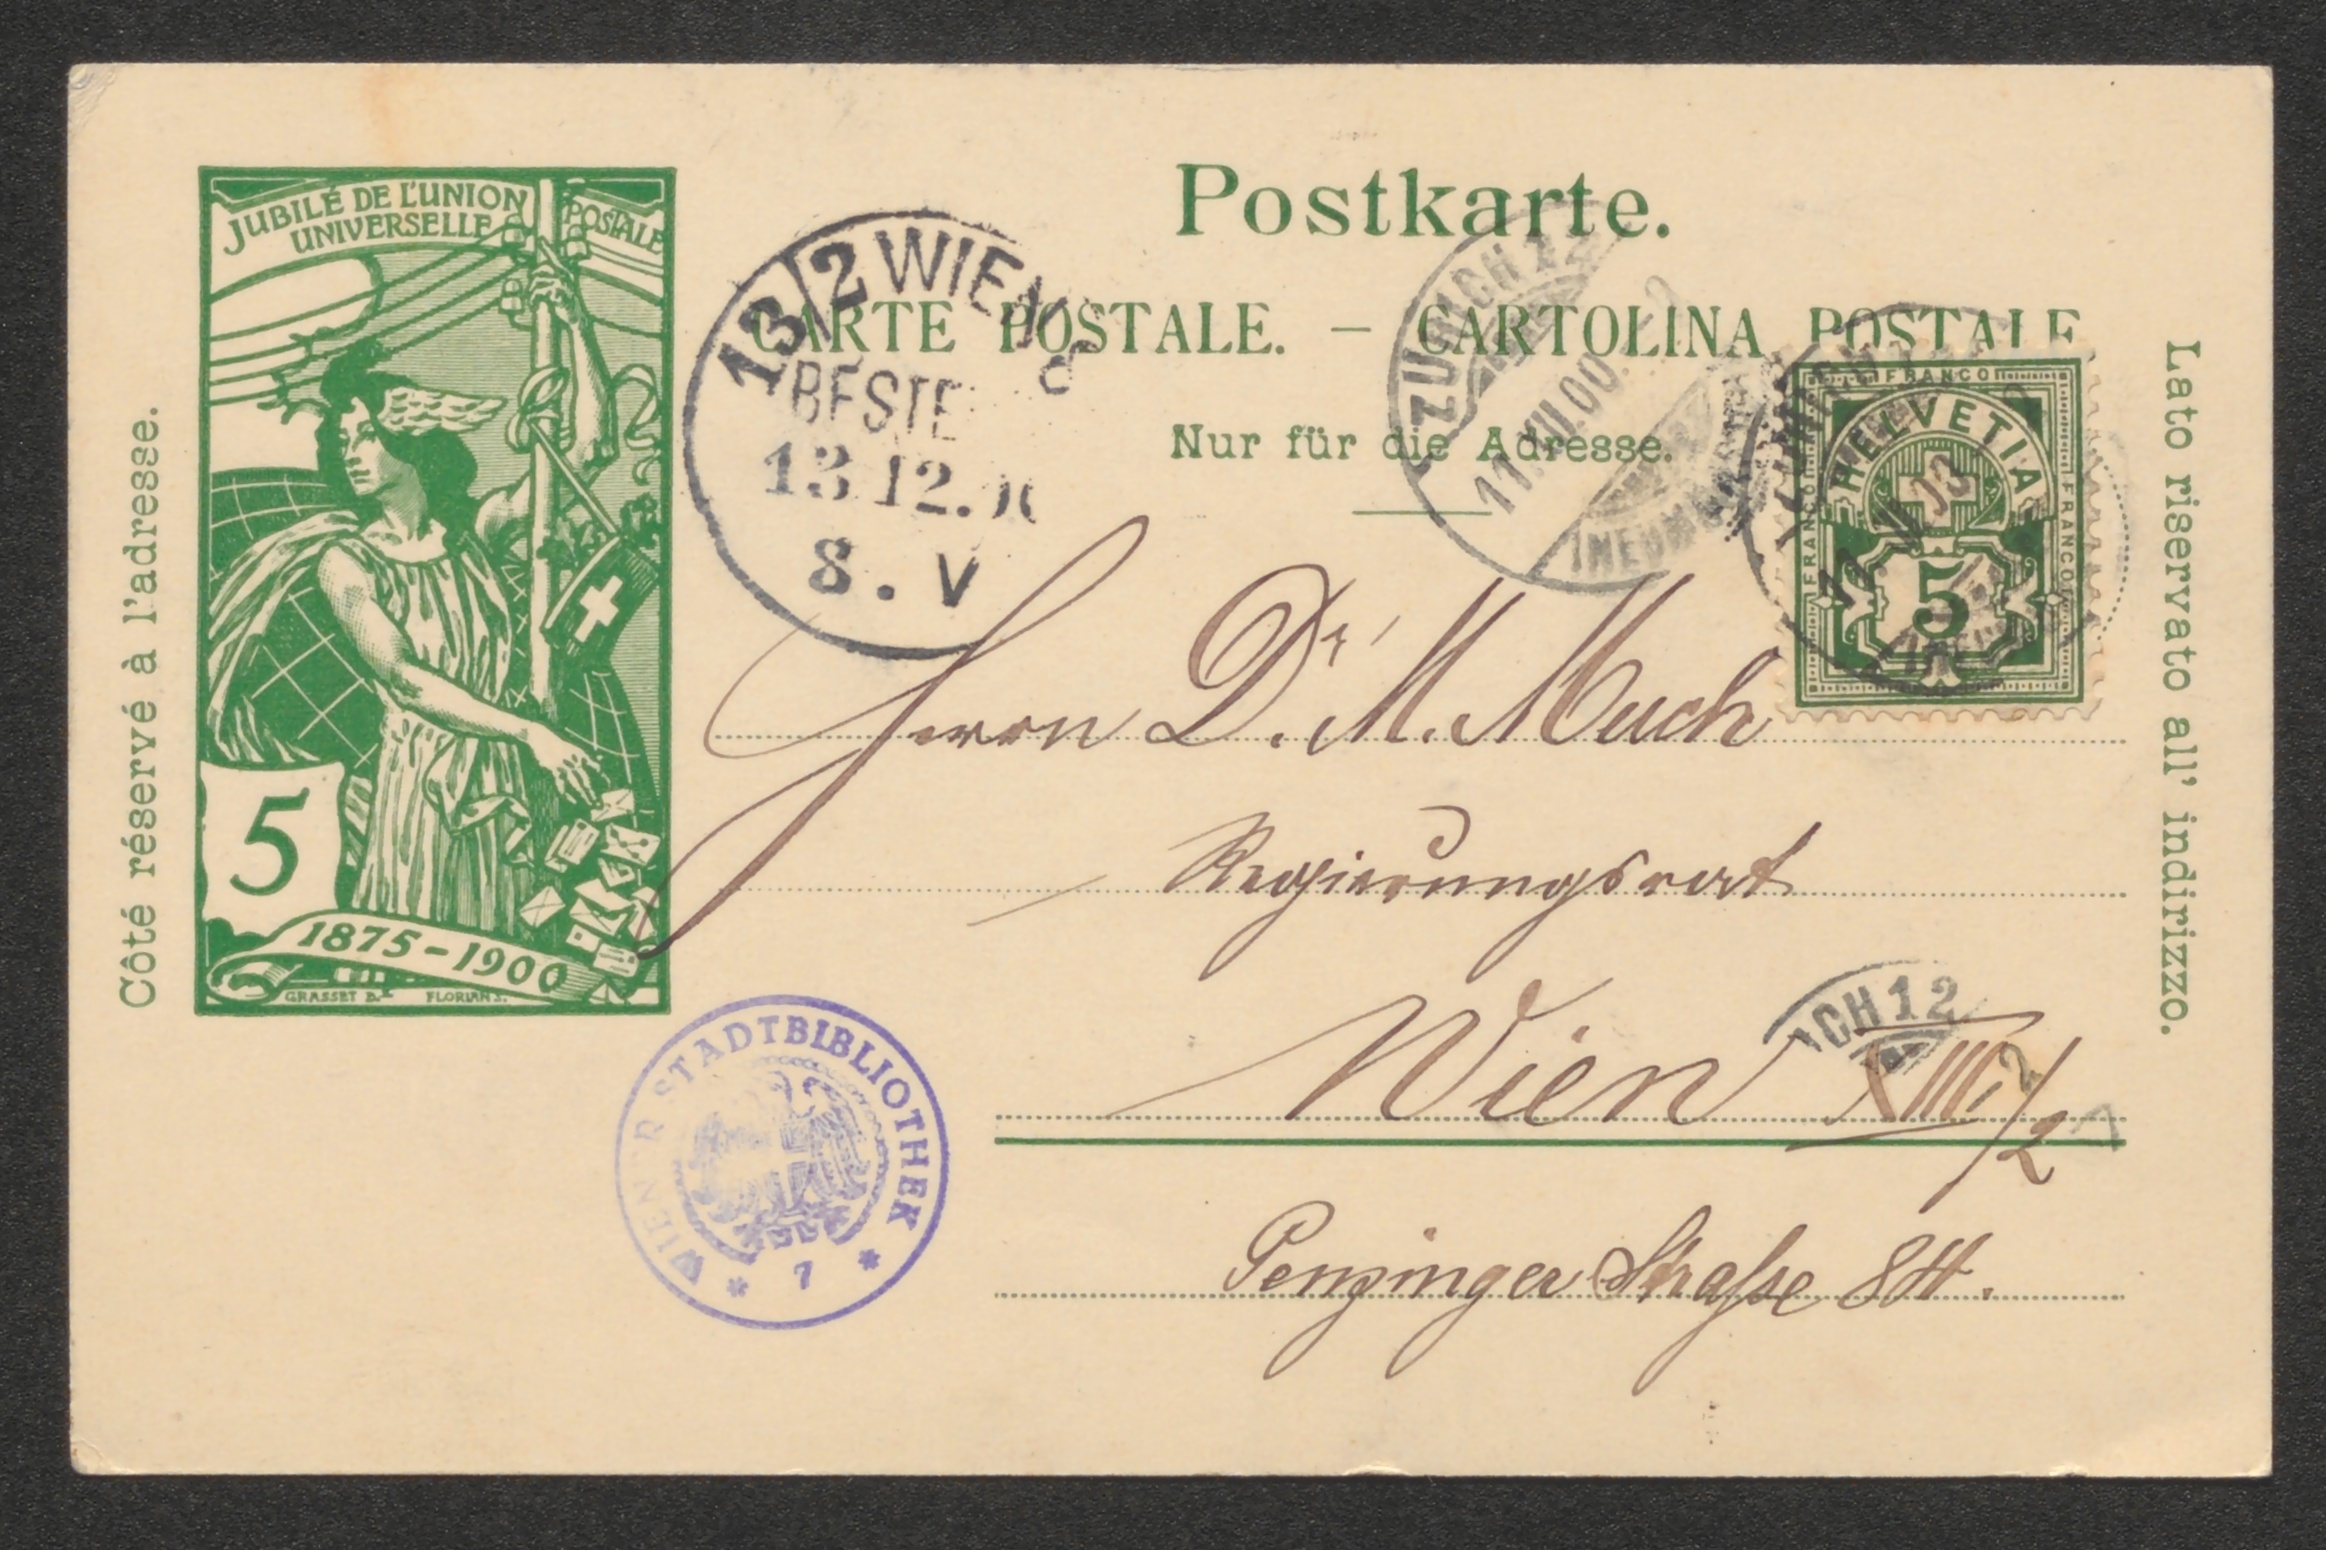 Postkarte.
CARTE POSTALE. — CARTOLINA POSTALE
Nur für die Adresse.
Côté réservé à l'adresse.
Lato riservato all' indirizzo.
JUBILÉ DE L'UNION
UNIVERSELLE POSTALE
5
1875-1900
GRASSET D. FLORIAN S.
13/2 WIEN
BESTE
13.12.
8. V
ZÜRICH 12
11. XII.00.
FRANCO
HELVETIA
FRANCO
FRANCO
5
Herrn Dr. M. Much
Regierungsrat
Wien XIII/2
CH 12
Penzinger Straße 84.
WIENER STADTBIBLIOTHEK
* 7 *